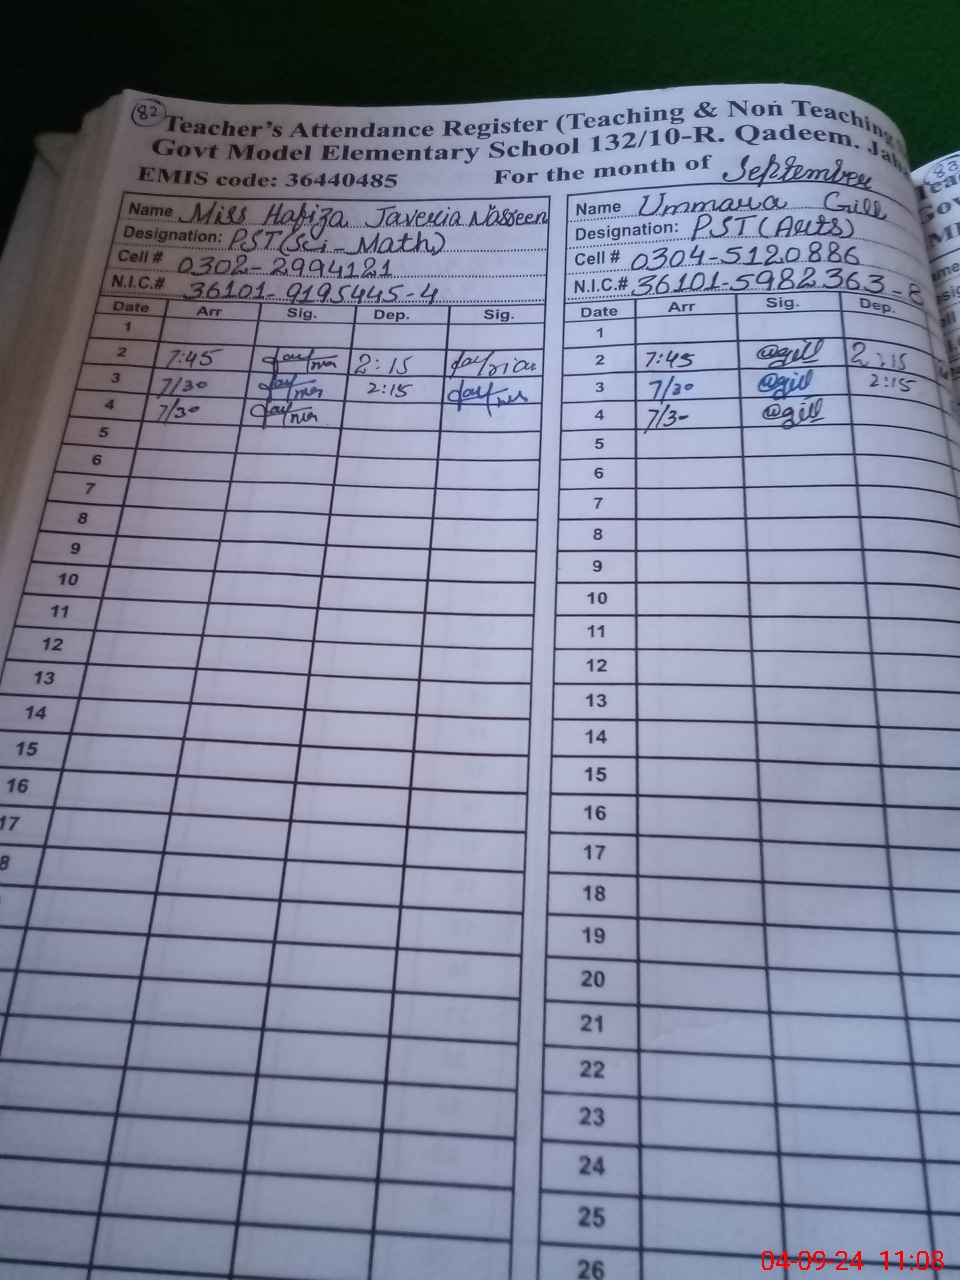 82
Teacher's Attendance Register (Teaching & Non Teaching
Govt Model Elementary School 132/10-R. Qadeem.
EMIS code: 36440485 For the month of September
Name Miss Hafiza Javeria Nasreen
Designation: PST(Sci-Math)
Cell # 0302-2994121
N.I.C.# 36101-9195445-4
Date Arr Sig. Dep. Sig.
1
2 7:45 2:15
3 7/30 2:15
4 7/30
5
6
7
8
9
10
11
12
13
14
15
16
17
8
Name Ummara Gill
Designation: PST(Arts)
Cell # 0304-5120886
N.I.C.# 36101-5982363-8
Date Arr Sig. Dep.
1
2 7:45 @gill 2:15
3 7/30 @gill 2:15
4 7/30 @gill
5
6
7
8
9
10
11
12
13
14
15
16
17
18
19
20
21
22
23
24
25
26
83
04-09-24 11:08